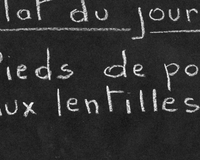 lat du jour
ieds de po
ux lentilles